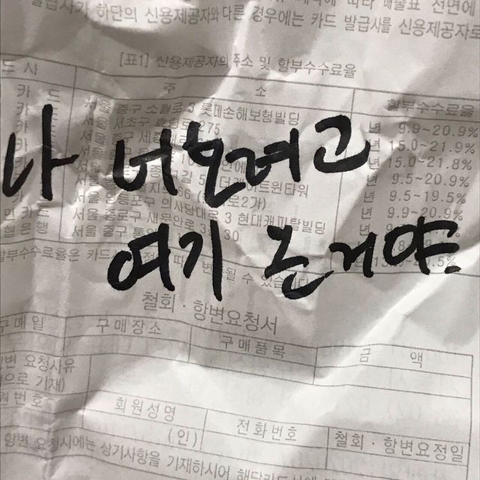 발급사가 하단의 신용제공자와 다른 경우에는 카드 발급사를 신용제공자로
[표1] 신용제공자의 주소 및 할부수수료율
드 사 주 소 할부수수료율
카드 서울 중구 소월로 3 롯데손해보험빌딩 년 9.9~20.9%
카드 서울 서초구 275 년 15.0~21.9%
카드 서울 중구 년 15.0~21.8%
년 9.5~20.9%
년 9.5~19.5%
카드 서울 의사당대로 3 현대캐피탈빌딩 년
은행 서울 중구 30
나 너 보려고
여기 온거야.
할부수수료율은 카드 변경될 수 있습니다
철회·항변요청서
구매일 구매장소 구매품목 금 액
항변 요청사유
으로 기재)
원번호 회원성명 전화번호 철회·항변요청일
(인)
항변 요청시에는 상기사항을 기재하시어 해당카드사에